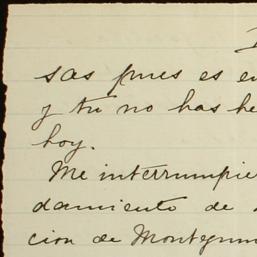 sas pues es e
y tu no has he
hoy.
Me interrumpie
damiento de
cion de Montegum